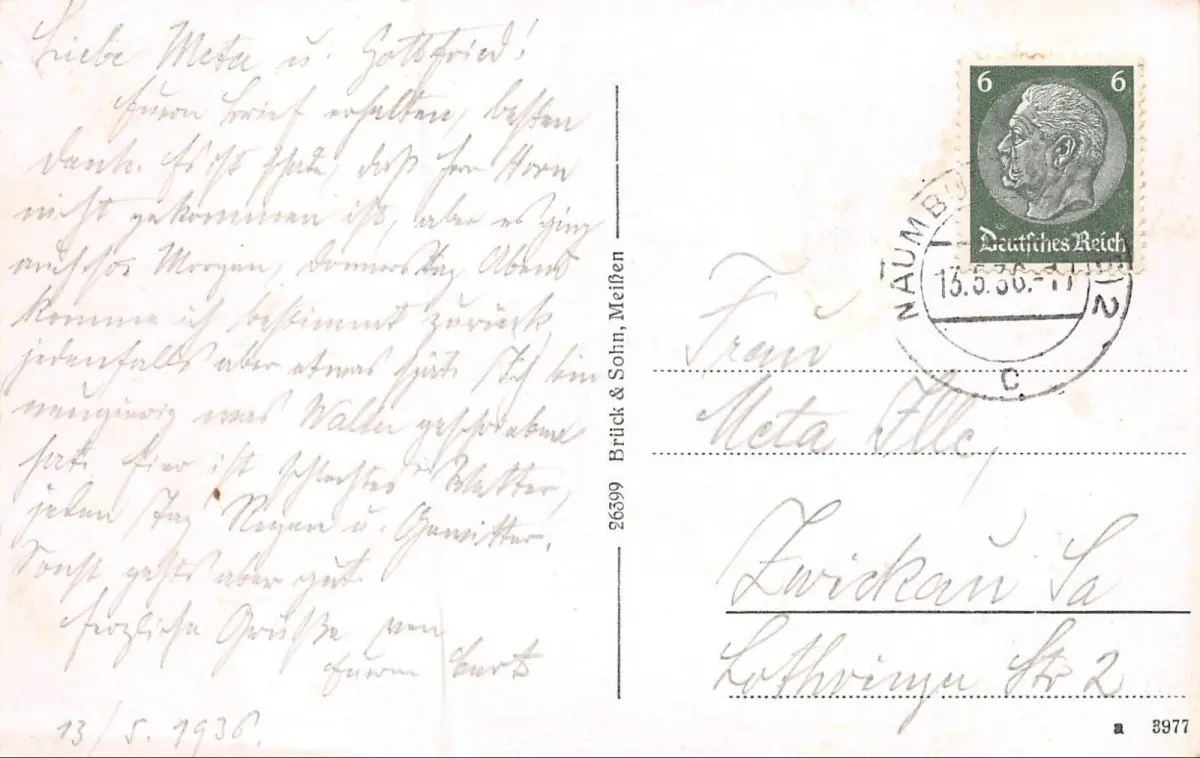 Liebe Meta u. Gottfried!
Euern Brief erhalten, besten
Dank. Es ist schade, daß Herr Horn
nicht gekommen ist, aber es ging
auch so. Morgen Donnerstag Abend
komme ich bestimmt zurück,
jedenfalls aber etwas spät. Ich bin
neugierig was Walter geschrieben
hat. Hier ist schlechtes Wetter,
jeden Tag Regen u. Gewitter.
Sonst gehts aber gut.
Herzliche Grüße von
Euerm Curt
13/5. 1936.
26399 Brück & Sohn, Meißen
6 6
Deutsches Reich
NAUMBU 2
13.5.36.-17
c
Frau
Meta Ille,
Zwickau Sa
Lothringer Str 2
a 3977